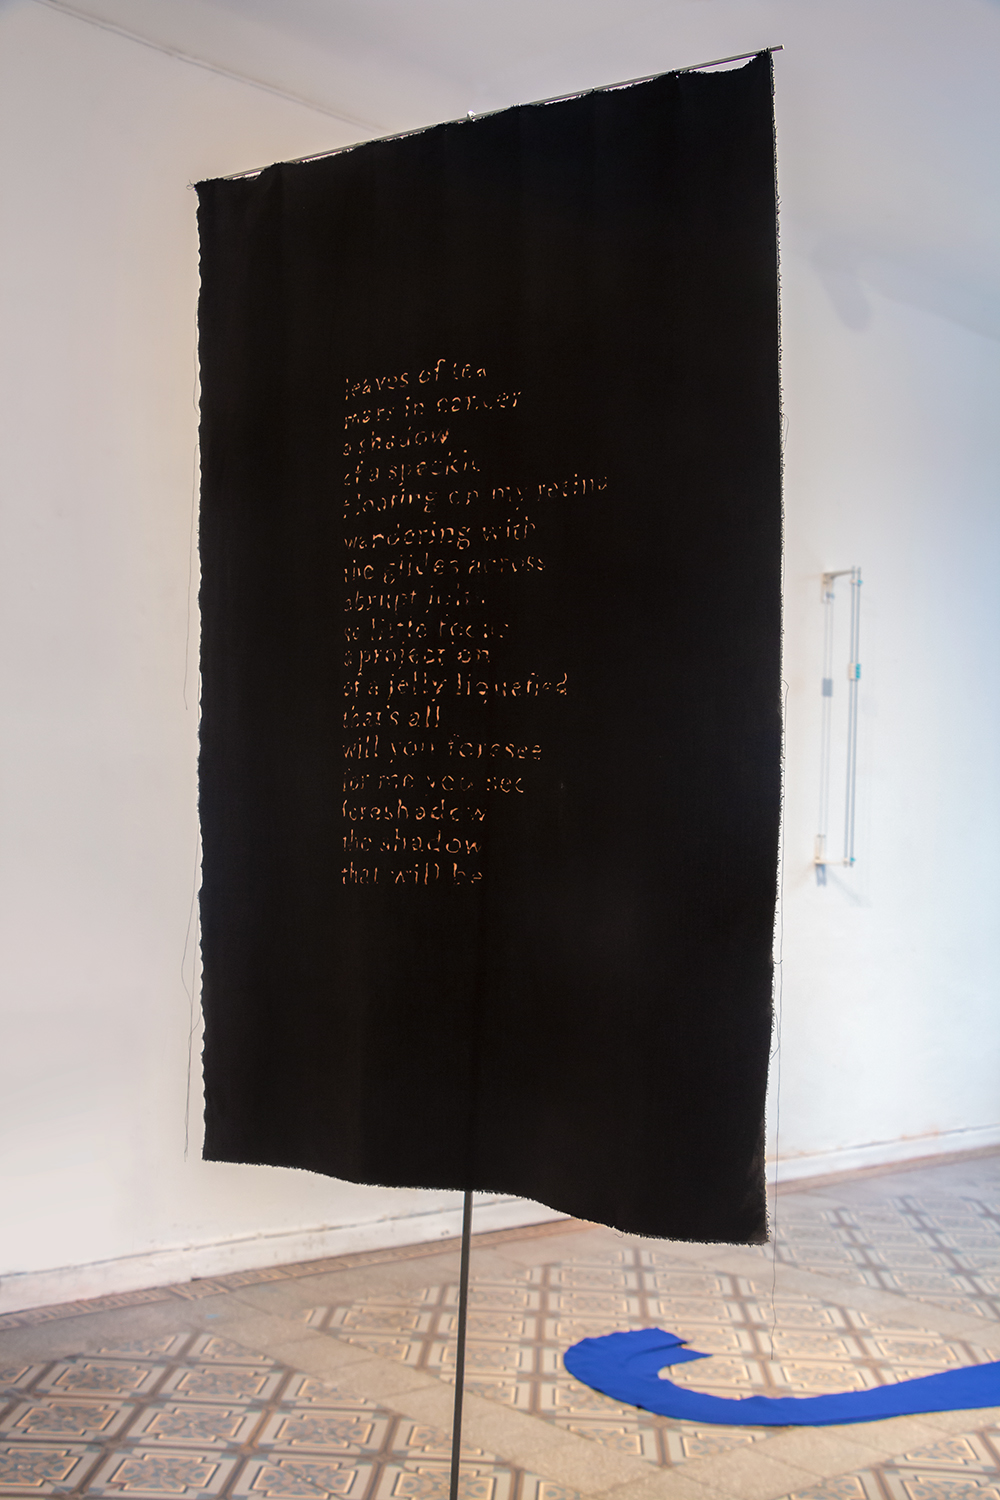 leaves of tea
mars in cancer
a shadow
of a speckle
floating on my retina
wandering with
the glides across
abrupt
so little focus
a projection
of a jelly liquefied
that's all
will you foresee
for me you see
foreshadow
the shadow
that will be